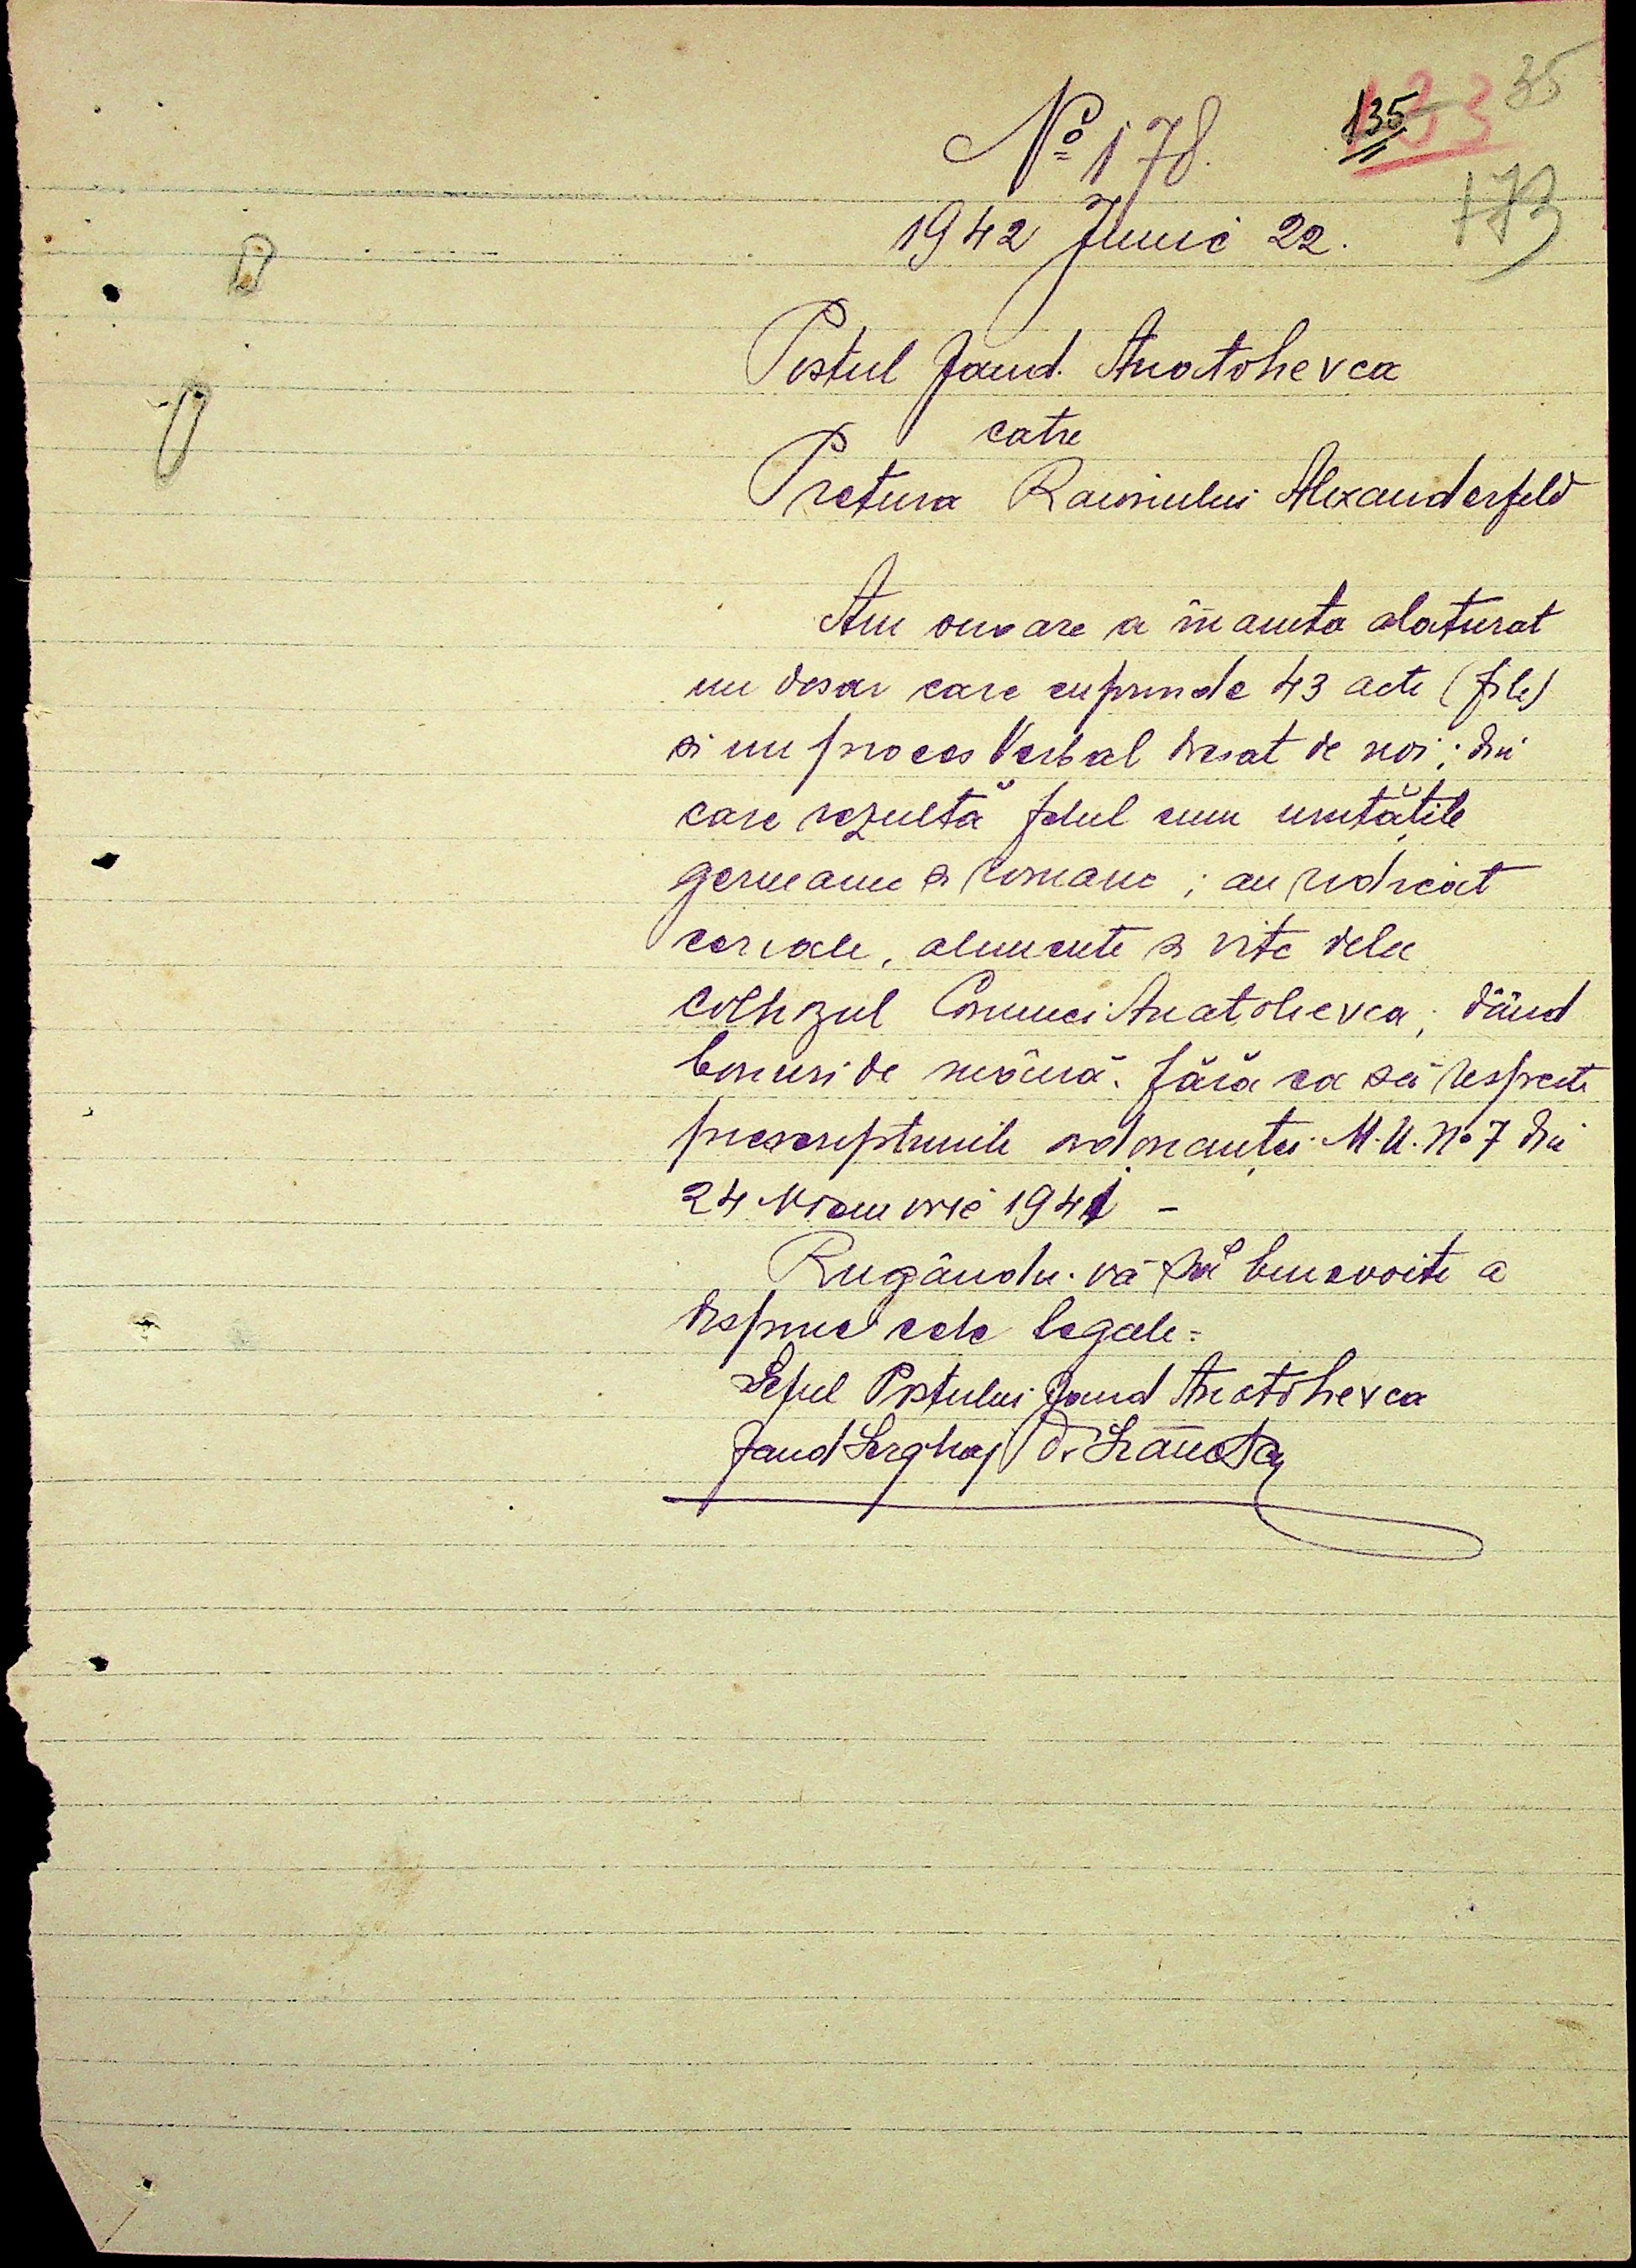 35
135
133
173
No 178.
1942 Junie 22.
Postul Jand. Anatolievca
catre
Pretura Raionului Alexanderfeld
Am onoare a înainta alaturat
un dosar care cuprinde 43 acte (file)
si un proces Verbal dresat de noi; din
care rezultă felul cum unitățile
germane si romane; au ridicat
cereale, alimente si vite dela
colhozul Comunei Anatolievca; dând
bonuri de mână. fără ca să respecte
prescriptiunile ordonanței M.U. No 7 din
24 Noemvrie 1941 -
Rugându-vă să binevoiti a
dispune cele legale=
Seful Postului Jand Anatolievca
Jand Serghej